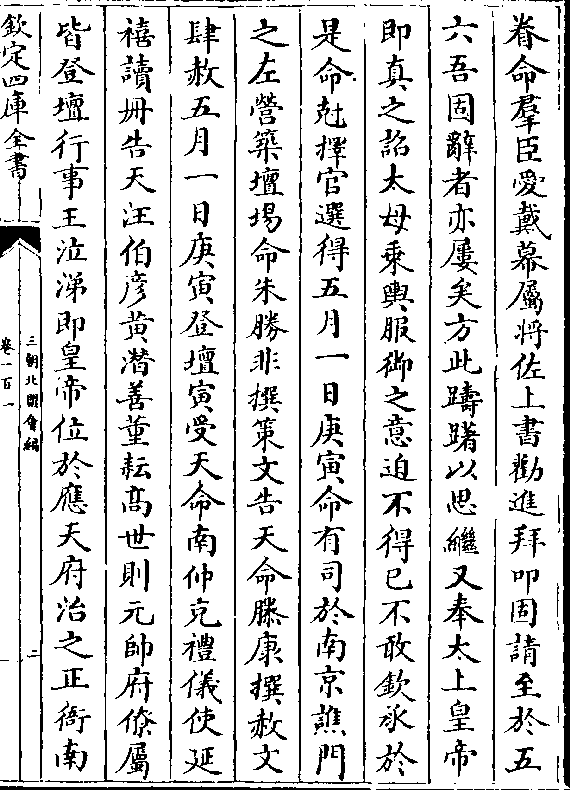 眷命羣臣愛戴幕屬將佐上書勸進拜叩固請至於五
六吾固辭者亦屢矣方此躊躇以思繼又奉太上皇帝
即真之詔太母乘輿服御之意迫不得已不敢欽承於
是命尅擇官選得五月一日庚寅命有司於南京譙門
之左營築壇場命朱勝非撰策文告天命滕康撰赦文
肆赦五月一日庚寅登壇寅受天命南仲充禮儀使延
禧讀冊告天汪伯彦黄潛善董耘髙世則元帥府僚屬
皆登壇行事王泣涕即皇帝位於應天府治之正衙南
欽定四庫全書
三朝北盟會編
卷一百一
二